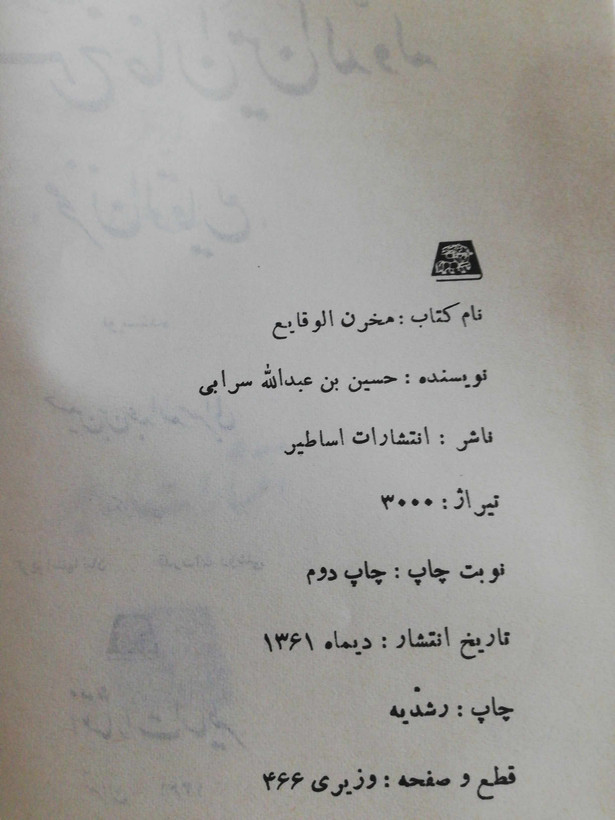 نام کتاب : مخرن الوقایع
نویسنده : حسین بن عبدالله سرابی
ناشر : انتشارات اساطیر
تیراژ : ۳۰۰۰
نوبت چاپ : چاپ دوم
تاریخ انتشار : دیماه ۱۳۶۱
چاپ : رشدیه
قطع و صفحه : وزیری ۴۶۶